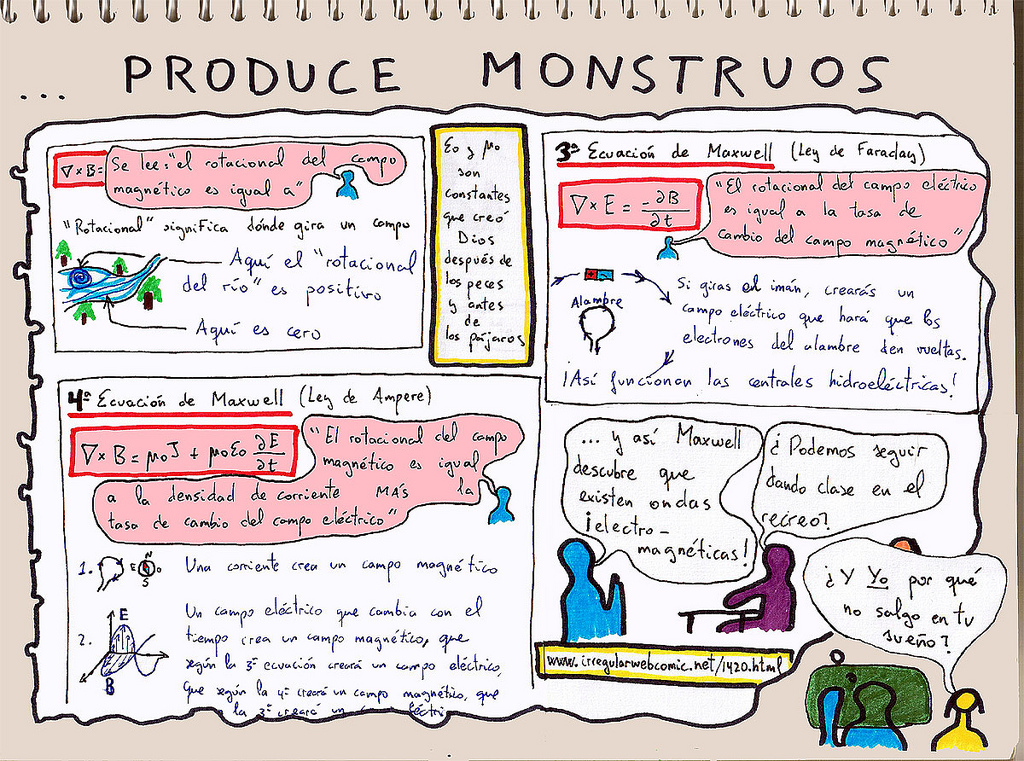 ... PRODUCE MONSTRUOS
∇×B=
Se lee: "el rotacional del campo
magnético es igual a"
"Rotacional" significa dónde gira un campo
Aquí el "rotacional
del río" es positivo
Aquí es cero
Ɛo y μo
son
constantes
que creó
Dios
después de
los peces
y antes
de
los pájaros
3ª Ecuación de Maxwell (Ley de Faraday)
∇×E = -∂B/∂t
"El rotacional del campo eléctrico
es igual a la tasa de
cambio del campo magnético"
Alambre
Si giras el imán, crearás un
campo eléctrico que hará que los
electrones del alambre den vueltas.
¡Así funcionan las centrales hidroeléctricas!
4ª Ecuación de Maxwell (Ley de Ampere)
∇×B = μoJ + μoƐo ∂E/∂t
"El rotacional del campo
magnético es igual
a la densidad de corriente MÁS la
tasa de cambio del campo eléctrico"
1.
N
E O
S
Una corriente crea un campo magnético
2.
E
B
Un campo eléctrico que cambia con el
tiempo crea un campo magnético, que
según la 3ª ecuación creará un campo eléctrico,
que según la 4ª creará un campo magnético, que
la 3ª creará un
... y así Maxwell
descubre que
existen ondas
¡electro-
magnéticas!
¿Podemos seguir
dando clase en el
recreo?
¿Y Yo por qué
no salgo en tu
sueño?
www.irregularwebcomic.net/1420.html